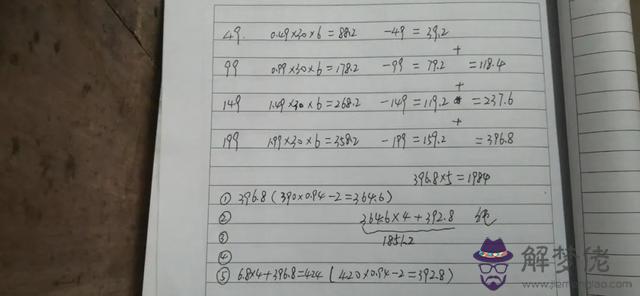 49 0.49×30×6=88.2 -49=39.2
+
99 0.99×30×6=178.2 -99=79.2 =118.4
+
149 1.49×30×6=268.2 -149=119.2 =237.6
+
199 1.99×30×6=358.2 -199=159.2 =396.8
396.8×5=1984
① 396.8(390×0.94-2=364.6)
② 364.6×4+392.8 纯
③ 1851.2
④
⑤ 6.8×4+396.8=424(420×0.94-2=392.8)
解梦佬
www.jiemenglao.com